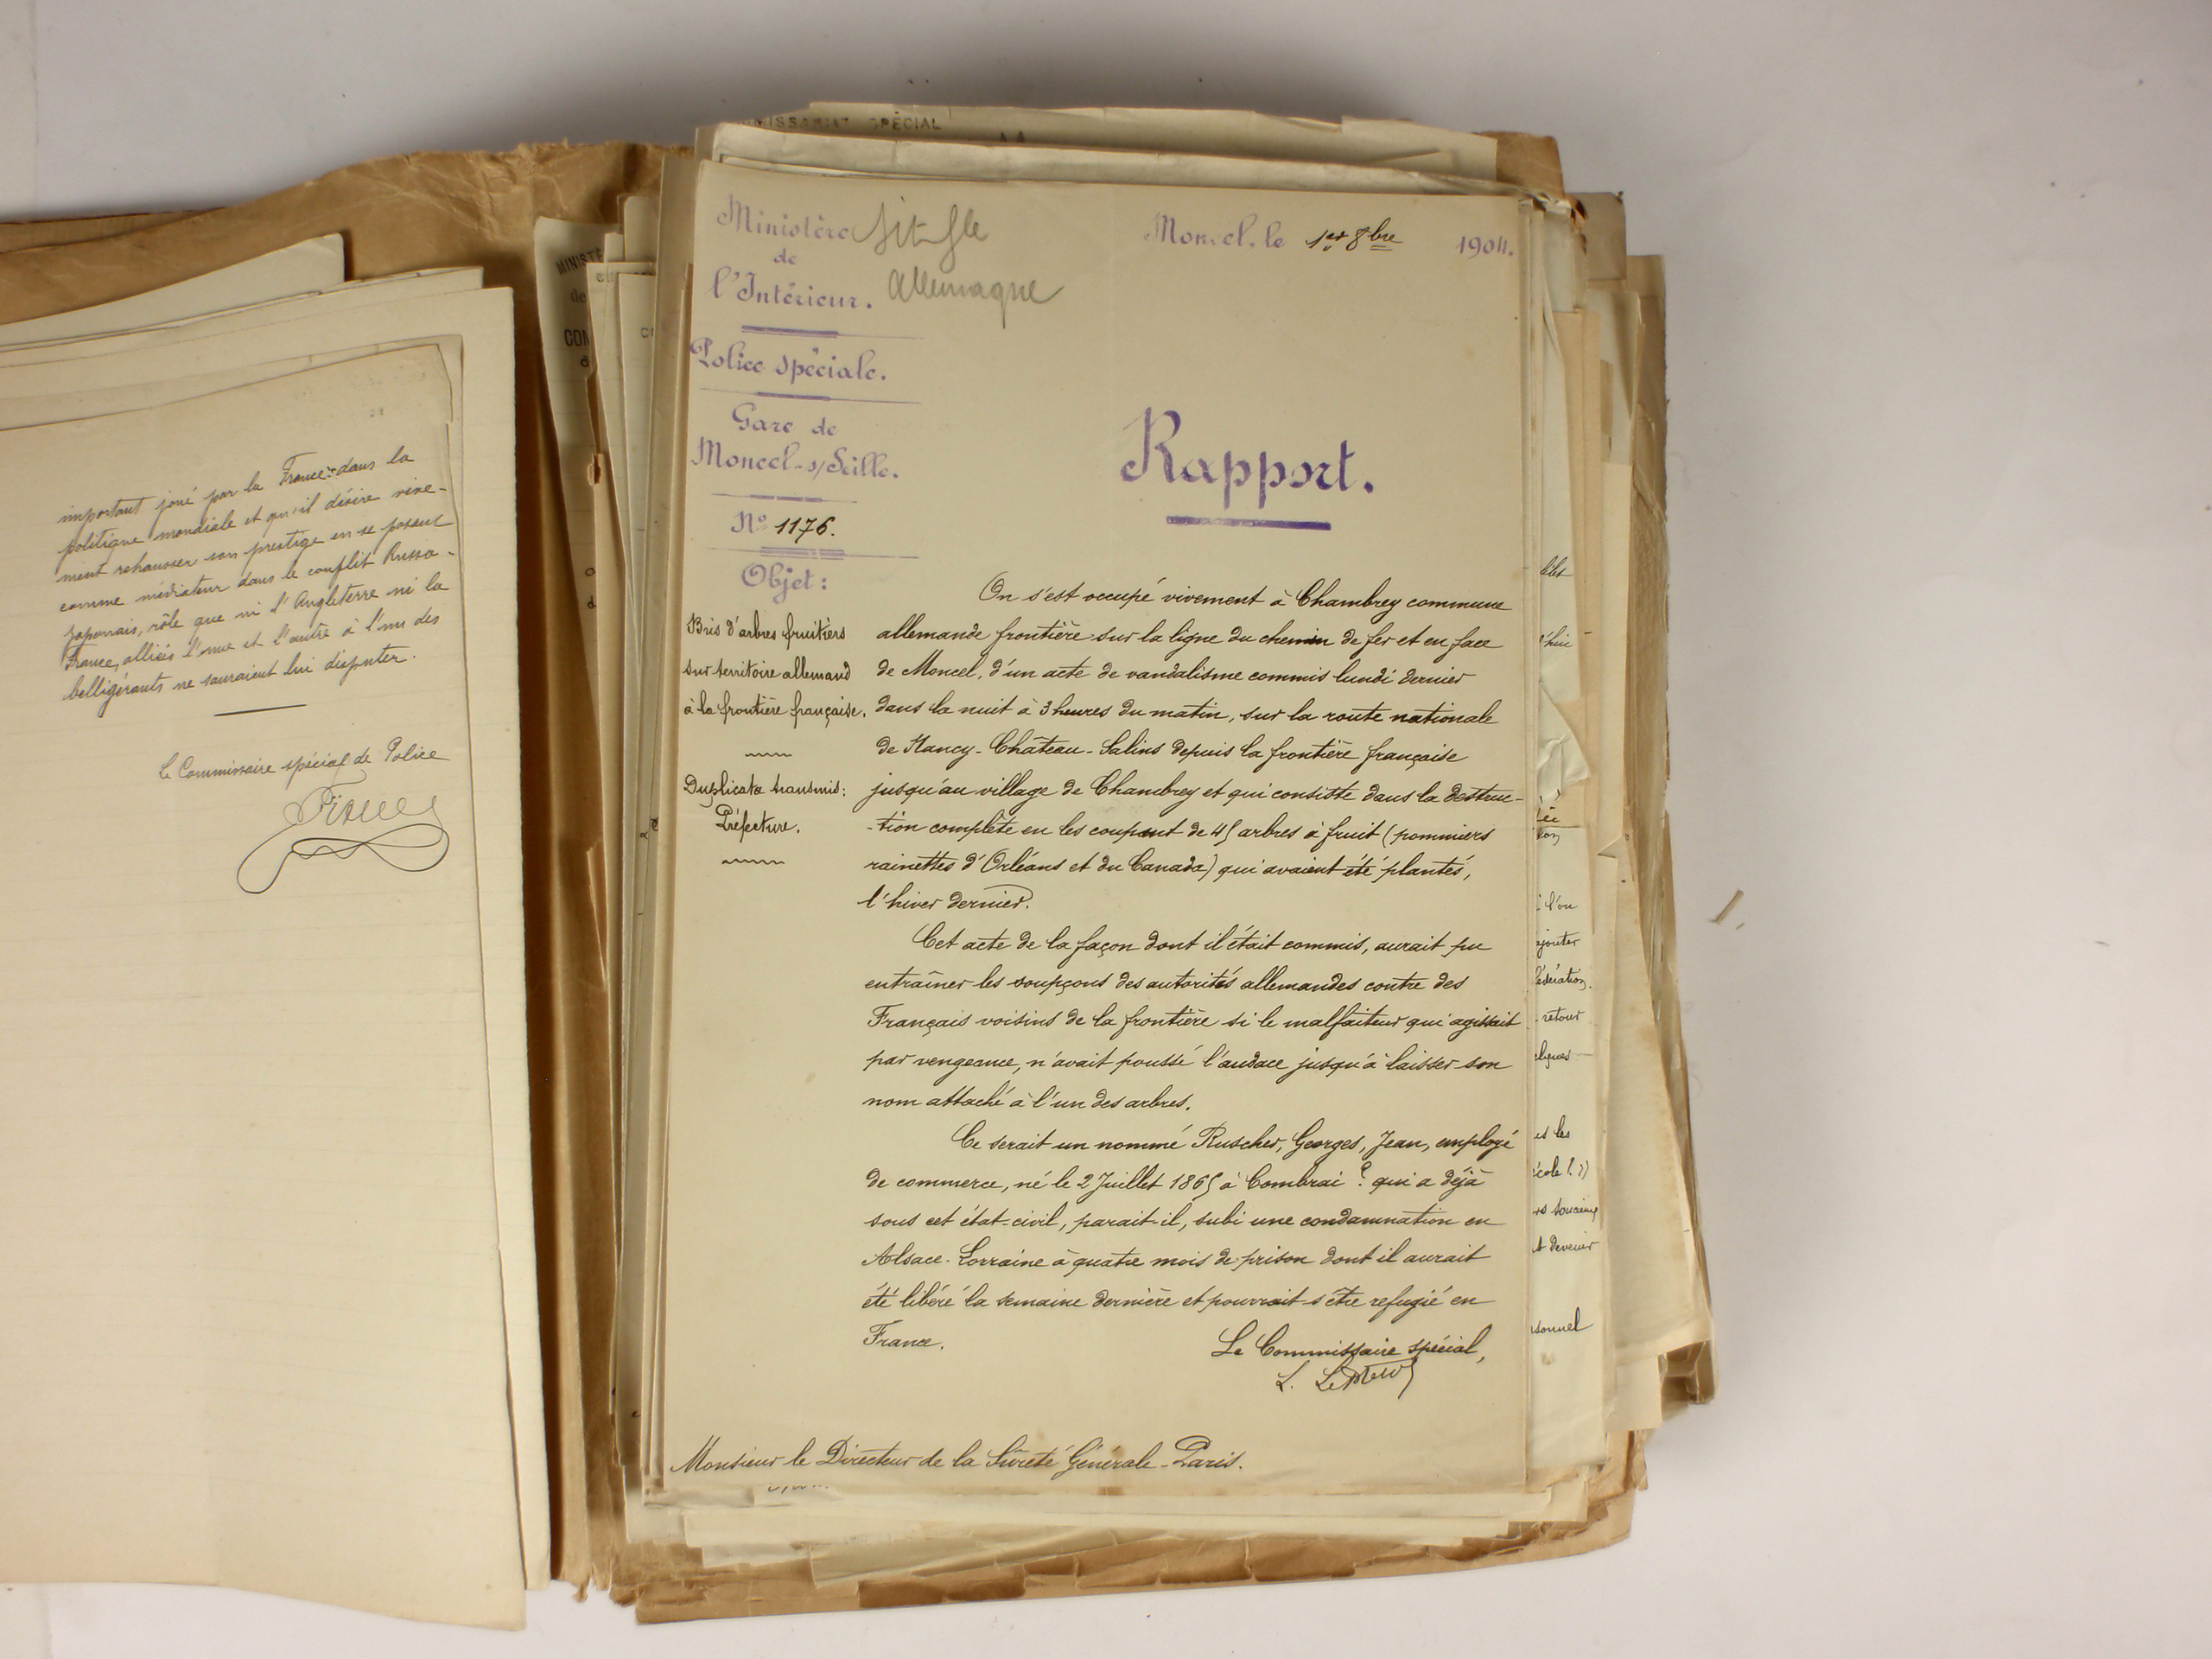 important joué par la France dans la
politique mondiale et qu'il désire vive-
ment rehausser son prestige en se posant
comme médiateur dans le conflit Russo-
Japonais, rôle que ni l'Angleterre ni la
France, alliés l'une et l'autre à l'un des
belligérants ne sauraient lui disputer.
Le Commissaire spécial de Police
MISSARIAT SPÉCIAL
MINISTÈ
de
CON
Ministère
de
l'Intérieur.
Allemagne
Moncel, le 1er 8bre 1904.
Police spéciale.
Gare de
Moncel-s/Seille.
N° 1176.
Rapport.
Objet:
Bris d'arbres fruitiers
sur territoire allemand
à la frontière française.
Duplicata transmis:
Préfecture.
On s'est occupé vivement à Chambrey commune
allemande frontière sur la ligne du chemin de fer et en face
de Moncel, d'un acte de vandalisme commis lundi dernier
dans la nuit à 3 heures du matin, sur la route nationale
de Nancy-Château-Salins depuis la frontière française
jusqu'au village de Chambrey et qui consiste dans la destruc-
-tion complète en les coupant de 45 arbres à fruit (pommiers
rainettes d'Orléans et du Canada) qui avaient été plantés,
l'hiver dernier.
Cet acte de la façon dont il était commis, aurait pu
entraîner les soupçons des autorités allemandes contre des
Français voisins de la frontière si le malfaiteur qui agissait
par vengeance, n'avait poussé l'audace jusqu'à laisser son
nom attaché à l'un des arbres.
Ce serait un nommé Ruscher, Georges, Jean, employé
de commerce, né le 2 Juillet 1865 à Combrai ? qui a déjà
sous cet état-civil, parait-il, subi une condamnation en
Alsace-Lorraine à quatre mois de prison dont il aurait
été libéré la semaine dernière et pourrait s'être refugié en
France.
Le Commissaire spécial,
Monsieur le Directeur de la Sûreté Générale-Paris.
l'on
ajouter
retour
es les
devenir
sonnel